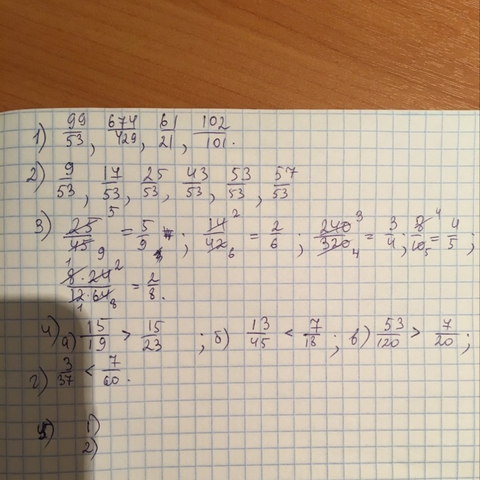 1) 99/53, 674/429, 61/21, 102/101.
2) 9/53, 17/53, 25/53, 43/53, 53/53, 57/53
3) 25/45 5 9 = 5/9; 14/42 2 6 = 2/6; 240/320 3 4 = 3/4; 8/10 4 5 = 4/5;
1 8 · 24 2 / 12 · 64 1 8 = 2/8.
4) а) 15/19 > 15/23; б) 13/45 < 7/18; в) 53/120 > 7/20;
г) 3/37 < 7/60.
5) 1)
2)